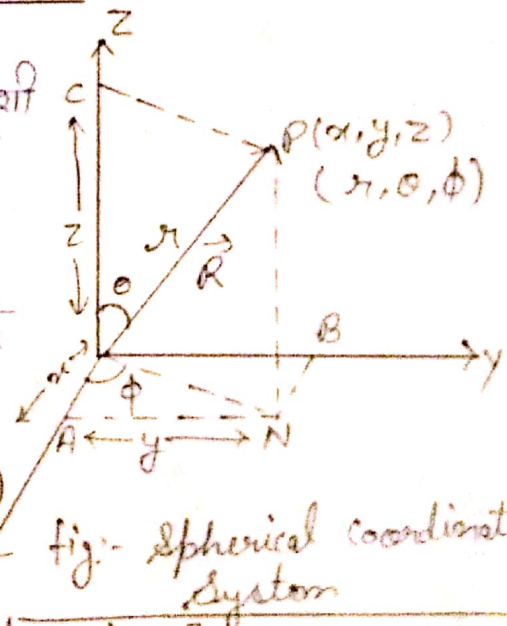 Z
C
P(x,y,z)
(r,θ,φ)
r
Z
R
θ
B
Y
x
φ
A
y
N
fig:- Spherical coordinat
System